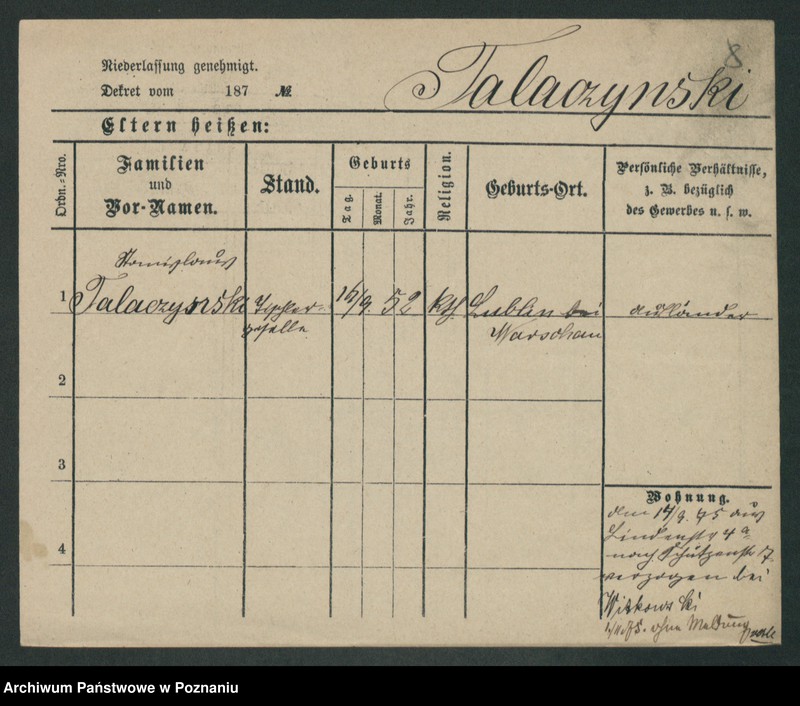 8
Niederlassung genehmigt.
Dekret vom 187 №
Talaczynski
Eltern heißen:
Ordn.-Nro.
Familien
und
Vor-Namen.
Stand.
Geburts
Tag.
Monat.
Jahr.
Religion.
Geburts-Ort.
Persönliche Verhältnisse,
z. B. bezüglich
des Gewerbes u. s. w.
Stanislaus
1 Talaczynski Tischler- 16/9. 52 kth Lublin bei ausländer
geselle Warschau
2
3
4
Wohnung.
den 14/9. 75 aus
Lindenstr 4a
nach Schützenstr 7
verzogen bei
Witkowski
75. ohne Meldung
Archiwum Państwowe w Poznaniu